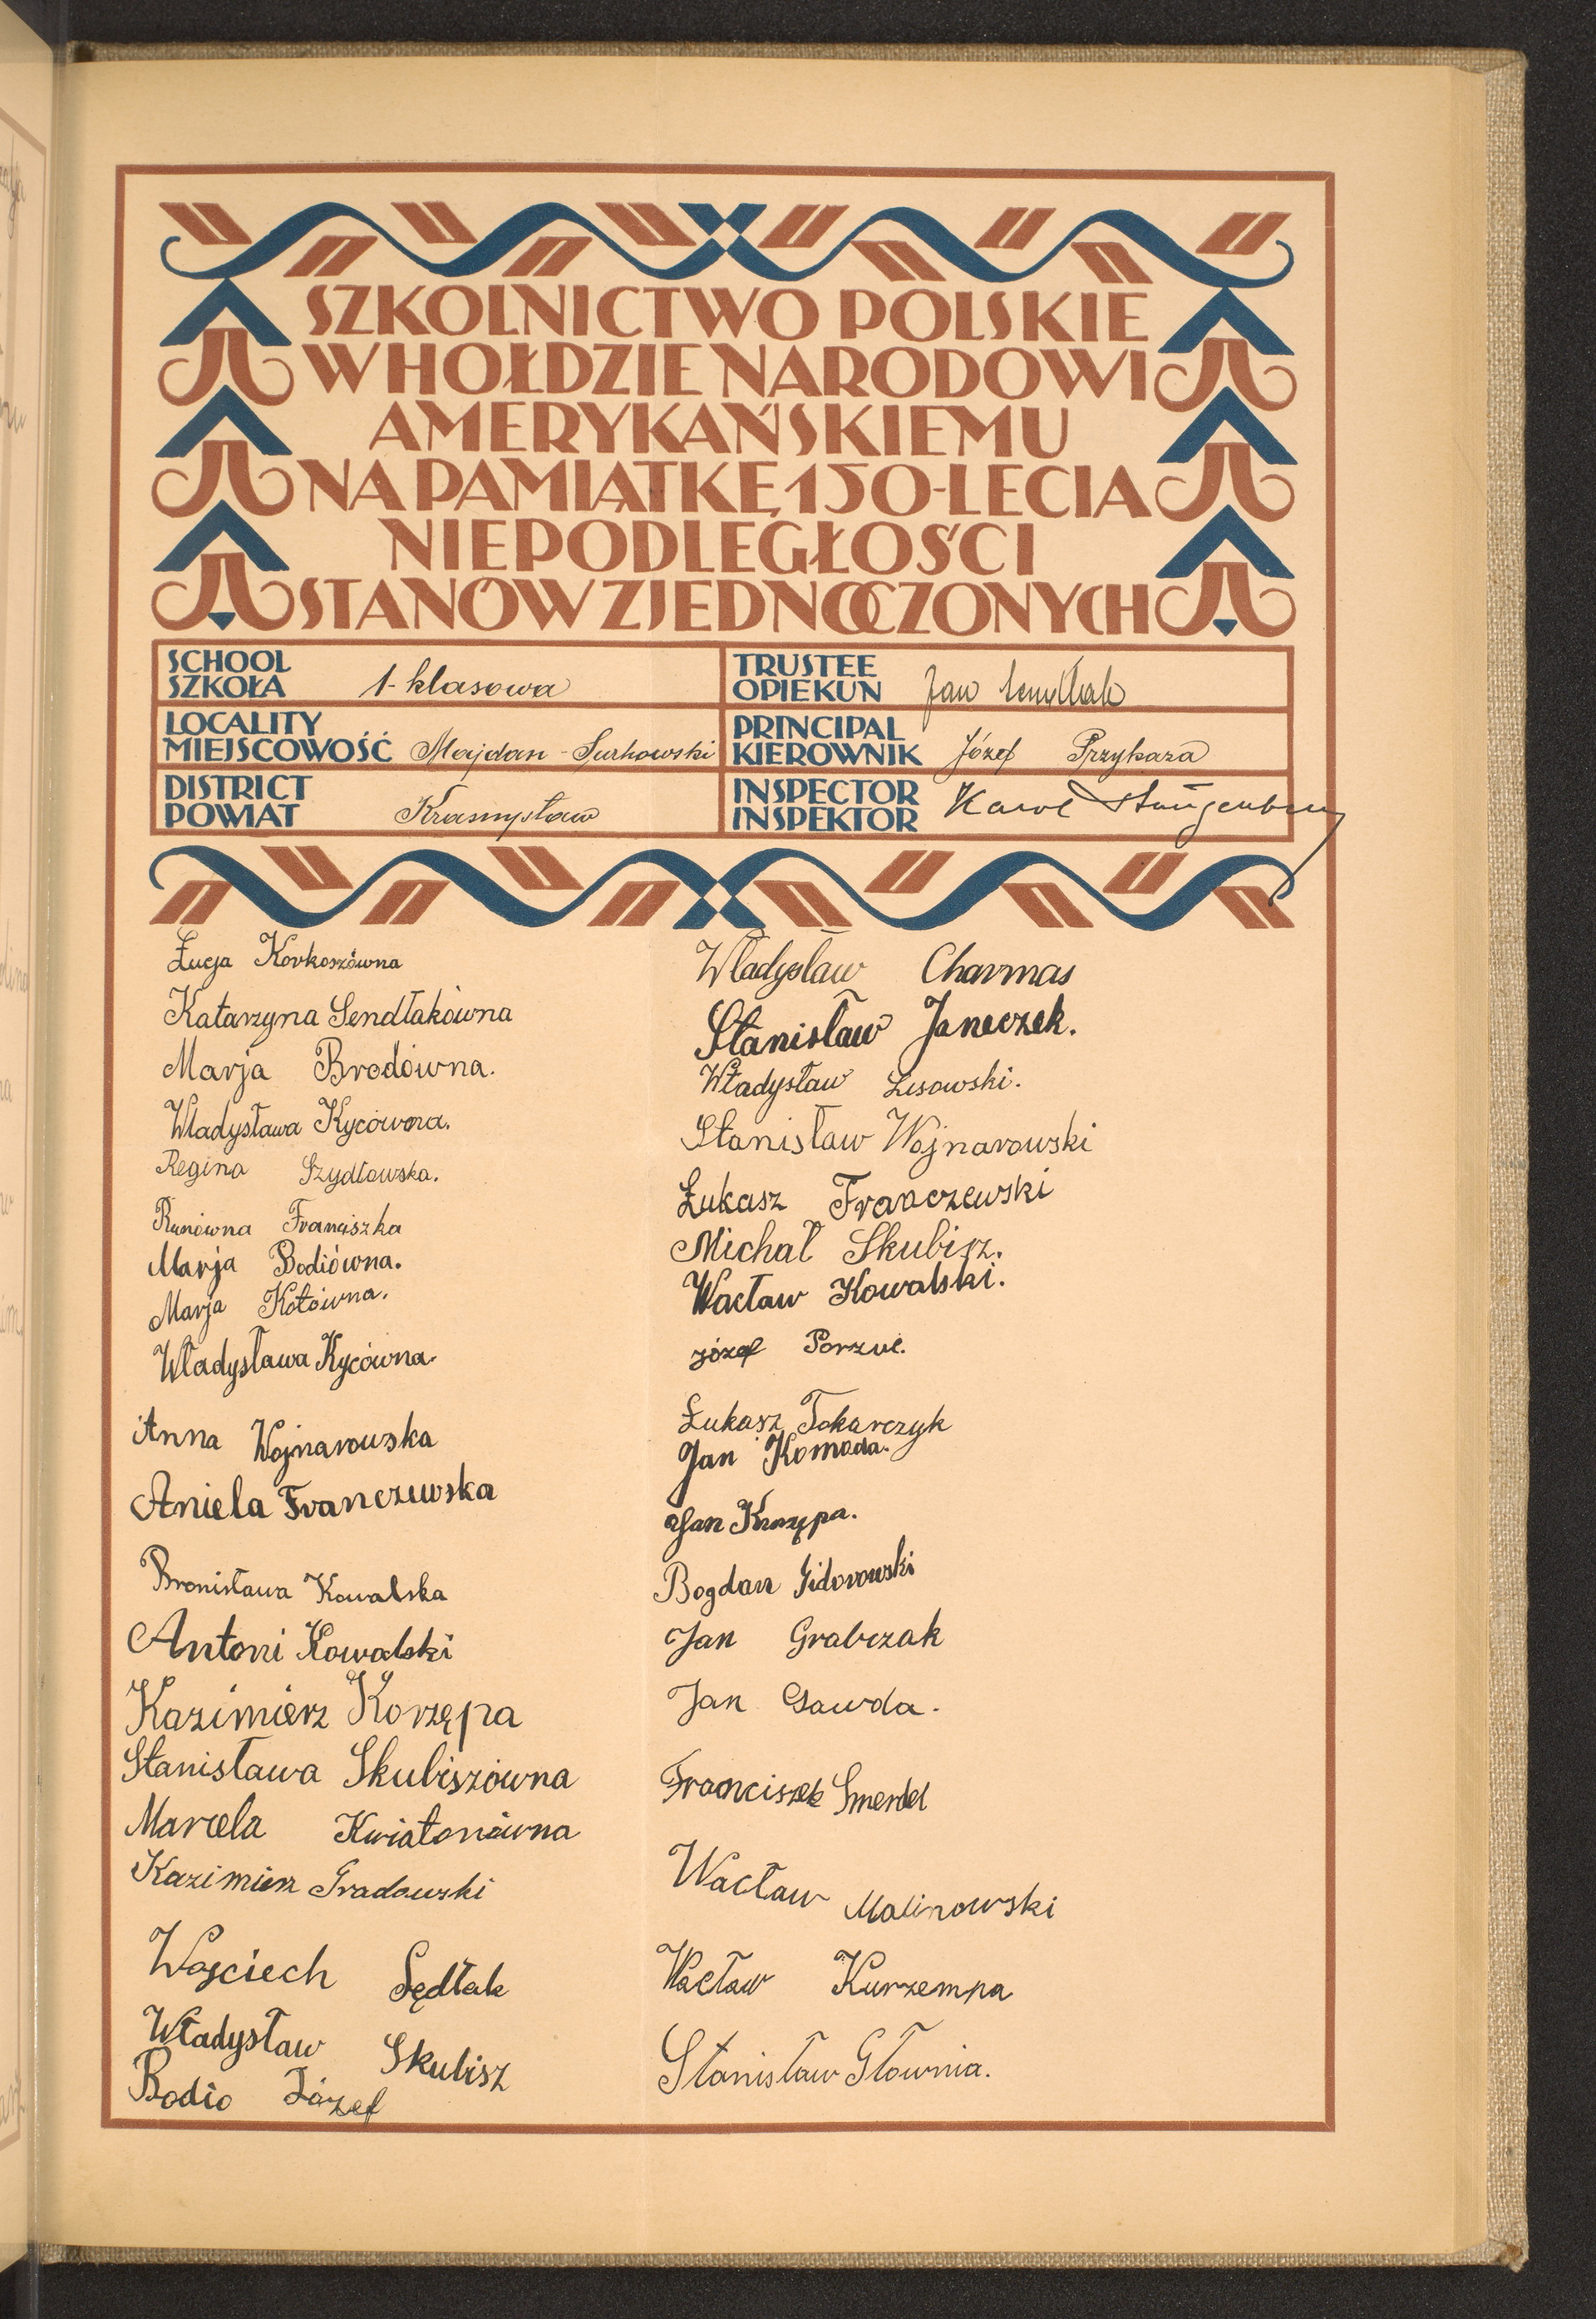 SZKOLNICTWO POLSKIE
W HOŁDZIE NARODOWI
AMERYKAŃSKIEMU
NA PAMIĄTKĘ 150-LECIA
NIEPODLEGŁOŚCI
STANÓW ZJEDNOCZONYCH
SCHOOL
SZKOŁA 1-klasowa
TRUSTEE
OPIEKUN Jan
LOCALITY
MIEJSCOWOŚĆ Majdan-Surhowski
PRINCIPAL
KIEROWNIK Józef Przykaza
DISTRICT
POWIAT Krasnystaw
INSPECTOR
INSPEKTOR Karol
Łucja Korkoszówna
Katarzyna Sendłakówna
Marja Brodówna.
Władysława Kycówna.
Regina Szydłowska.
Franciszka
Marja Bodiówna.
Marja Kotówna.
Władysława Kycówna.
Anna Wojnarowska
Aniela Franczewska
Bronisława Kowalska
Antoni Kowalski
Kazimierz Korzępa
Stanisława Skubiszówna
Marcela Kwiatonówna
Kazimierz Gradowski
Wojciech Sędłak
Władysław Skubisz
Bodio Józef
Władysław Charmas
Stanisław Janeczek.
Władysław Lisowski.
Stanisław Wojnarowski
Łukasz Franczewski
Michał Skubisz.
Wacław Kowalski.
Józef Porzuć.
Łukasz Tokarczyk
Jan Komoda.
Jan
Bogdan Sidorowski
Jan Grabczak
Jan Gawda.
Franciszek Smerdel
Wacław Malinowski
Wacław Kurzempa
Stanisław Głownia.